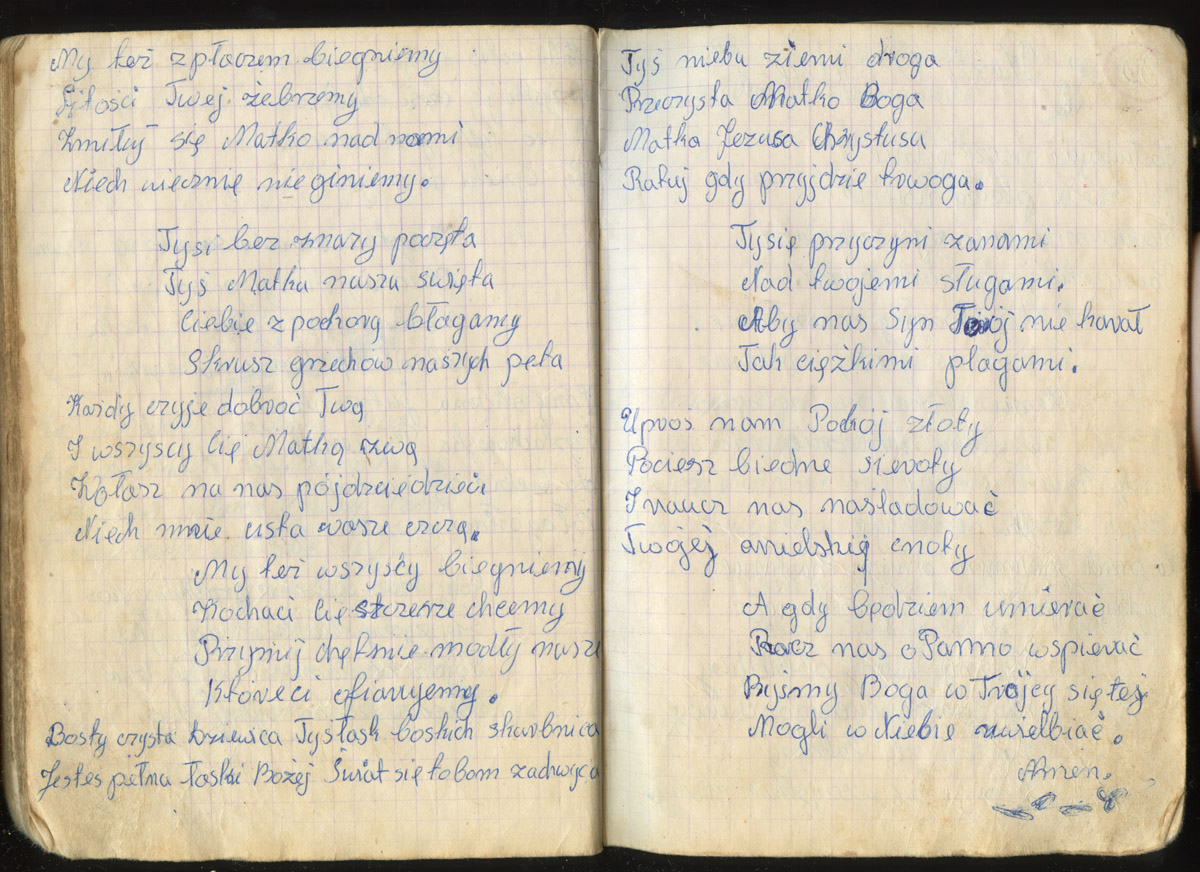 My też z płaczem biegniemy
Litości Twej żebrzemy
Zmiłuj się Matko nad nami
Niech wiecznię nie giniemy.
Tyśi bez zmazy poczęta
Tyś Matka nasza święta
Ciebie z pokorą błagamy
Skrusz grzechów naszych pęta
Każdy czyje dobroć Twą
I wszyscy Cię Matką zwą
Wołasz na nas pójdzcie dzieci
Niech mnie usta wasze czczą.
My też wszyscy biegniemy
Kochaci Cię szczerze chcemy
Przyjmij chętnie modły nasze
Któreci ofiarujemy.
Bosty czysta Dziewica Tyś łask boskich skarbnica
Jesteś pełna łaski Bożej Świat się tobom zachwyca
Tyś niebu ziemi droga
Przeczysta Matko Boga
Matka Jezusa Chrystusa
Ratuj gdy przyjdzie trwoga.
Tysię przyczyni zanami
Nad twojemi sługami.
Aby nas Syn Twój nie karał
Tak ciężkimi plagami.
Uproś nam Pokój złoty
Pociesz biedne sieroty
I naucz nas naśladować
Twojéj anielskiej cnoty
A gdy będziem umierać
Racz nas o Panno wspierać
Byśmy Boga w Trójcy się tej
Mogli w Niebie uwielbiać.
Amen.